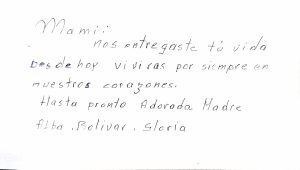 Mami:
nos entregaste tú vida
Desde hoy viviras por siempre en
nuestros corazones.
Hasta pronto Adorada Madre
Alba . Bolivar . Gloria